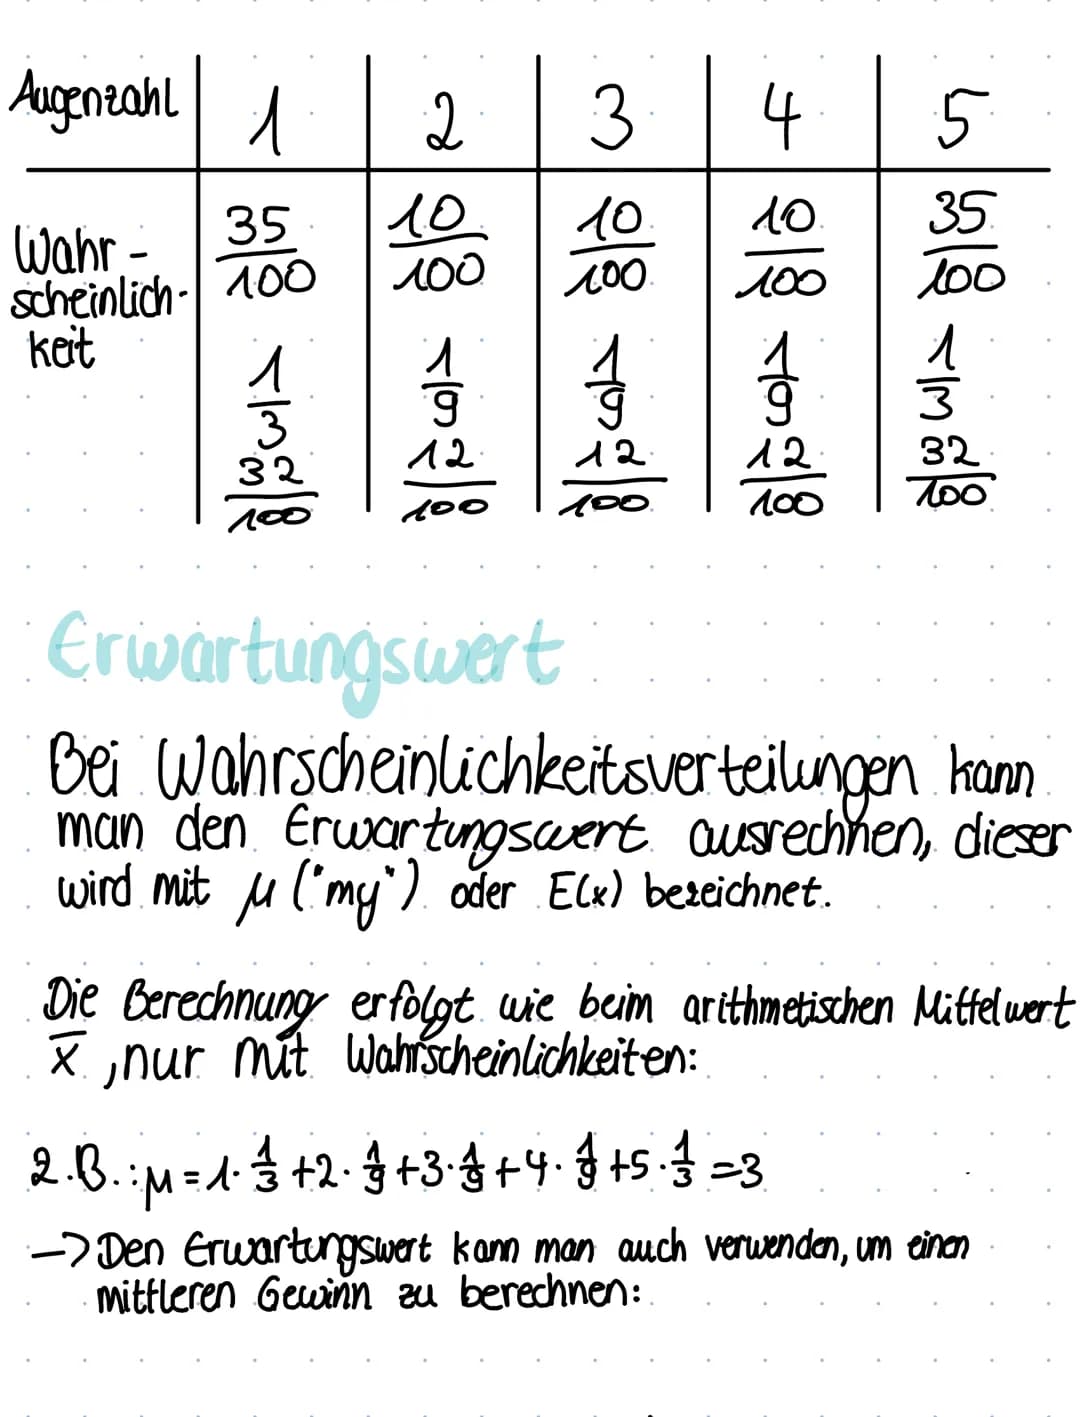 Augenzahl 1 2 3 4 5
Wahr- 35/100 10/100 10/100 10/100 35/100
scheinlich-
keit 1/3 1/9 1/9 1/9 1/3
32/100 12/100 12/100 12/100 32/100
Erwartungswert
Bei Wahrscheinlichkeitsverteilungen kann
man den Erwartungswert ausrechnen, dieser
wird mit μ ("my") oder E(x) bezeichnet.
Die Berechnung erfolgt wie beim arithmetischen Mittelwert
x̅, nur mit Wahrscheinlichkeiten:
z.B.: μ = 1·1/3 +2·1/9 +3·1/9 +4·1/9 +5·1/3 =3
-> Den Erwartungswert kann man auch verwenden, um einen
mittleren Gewinn zu berechnen: